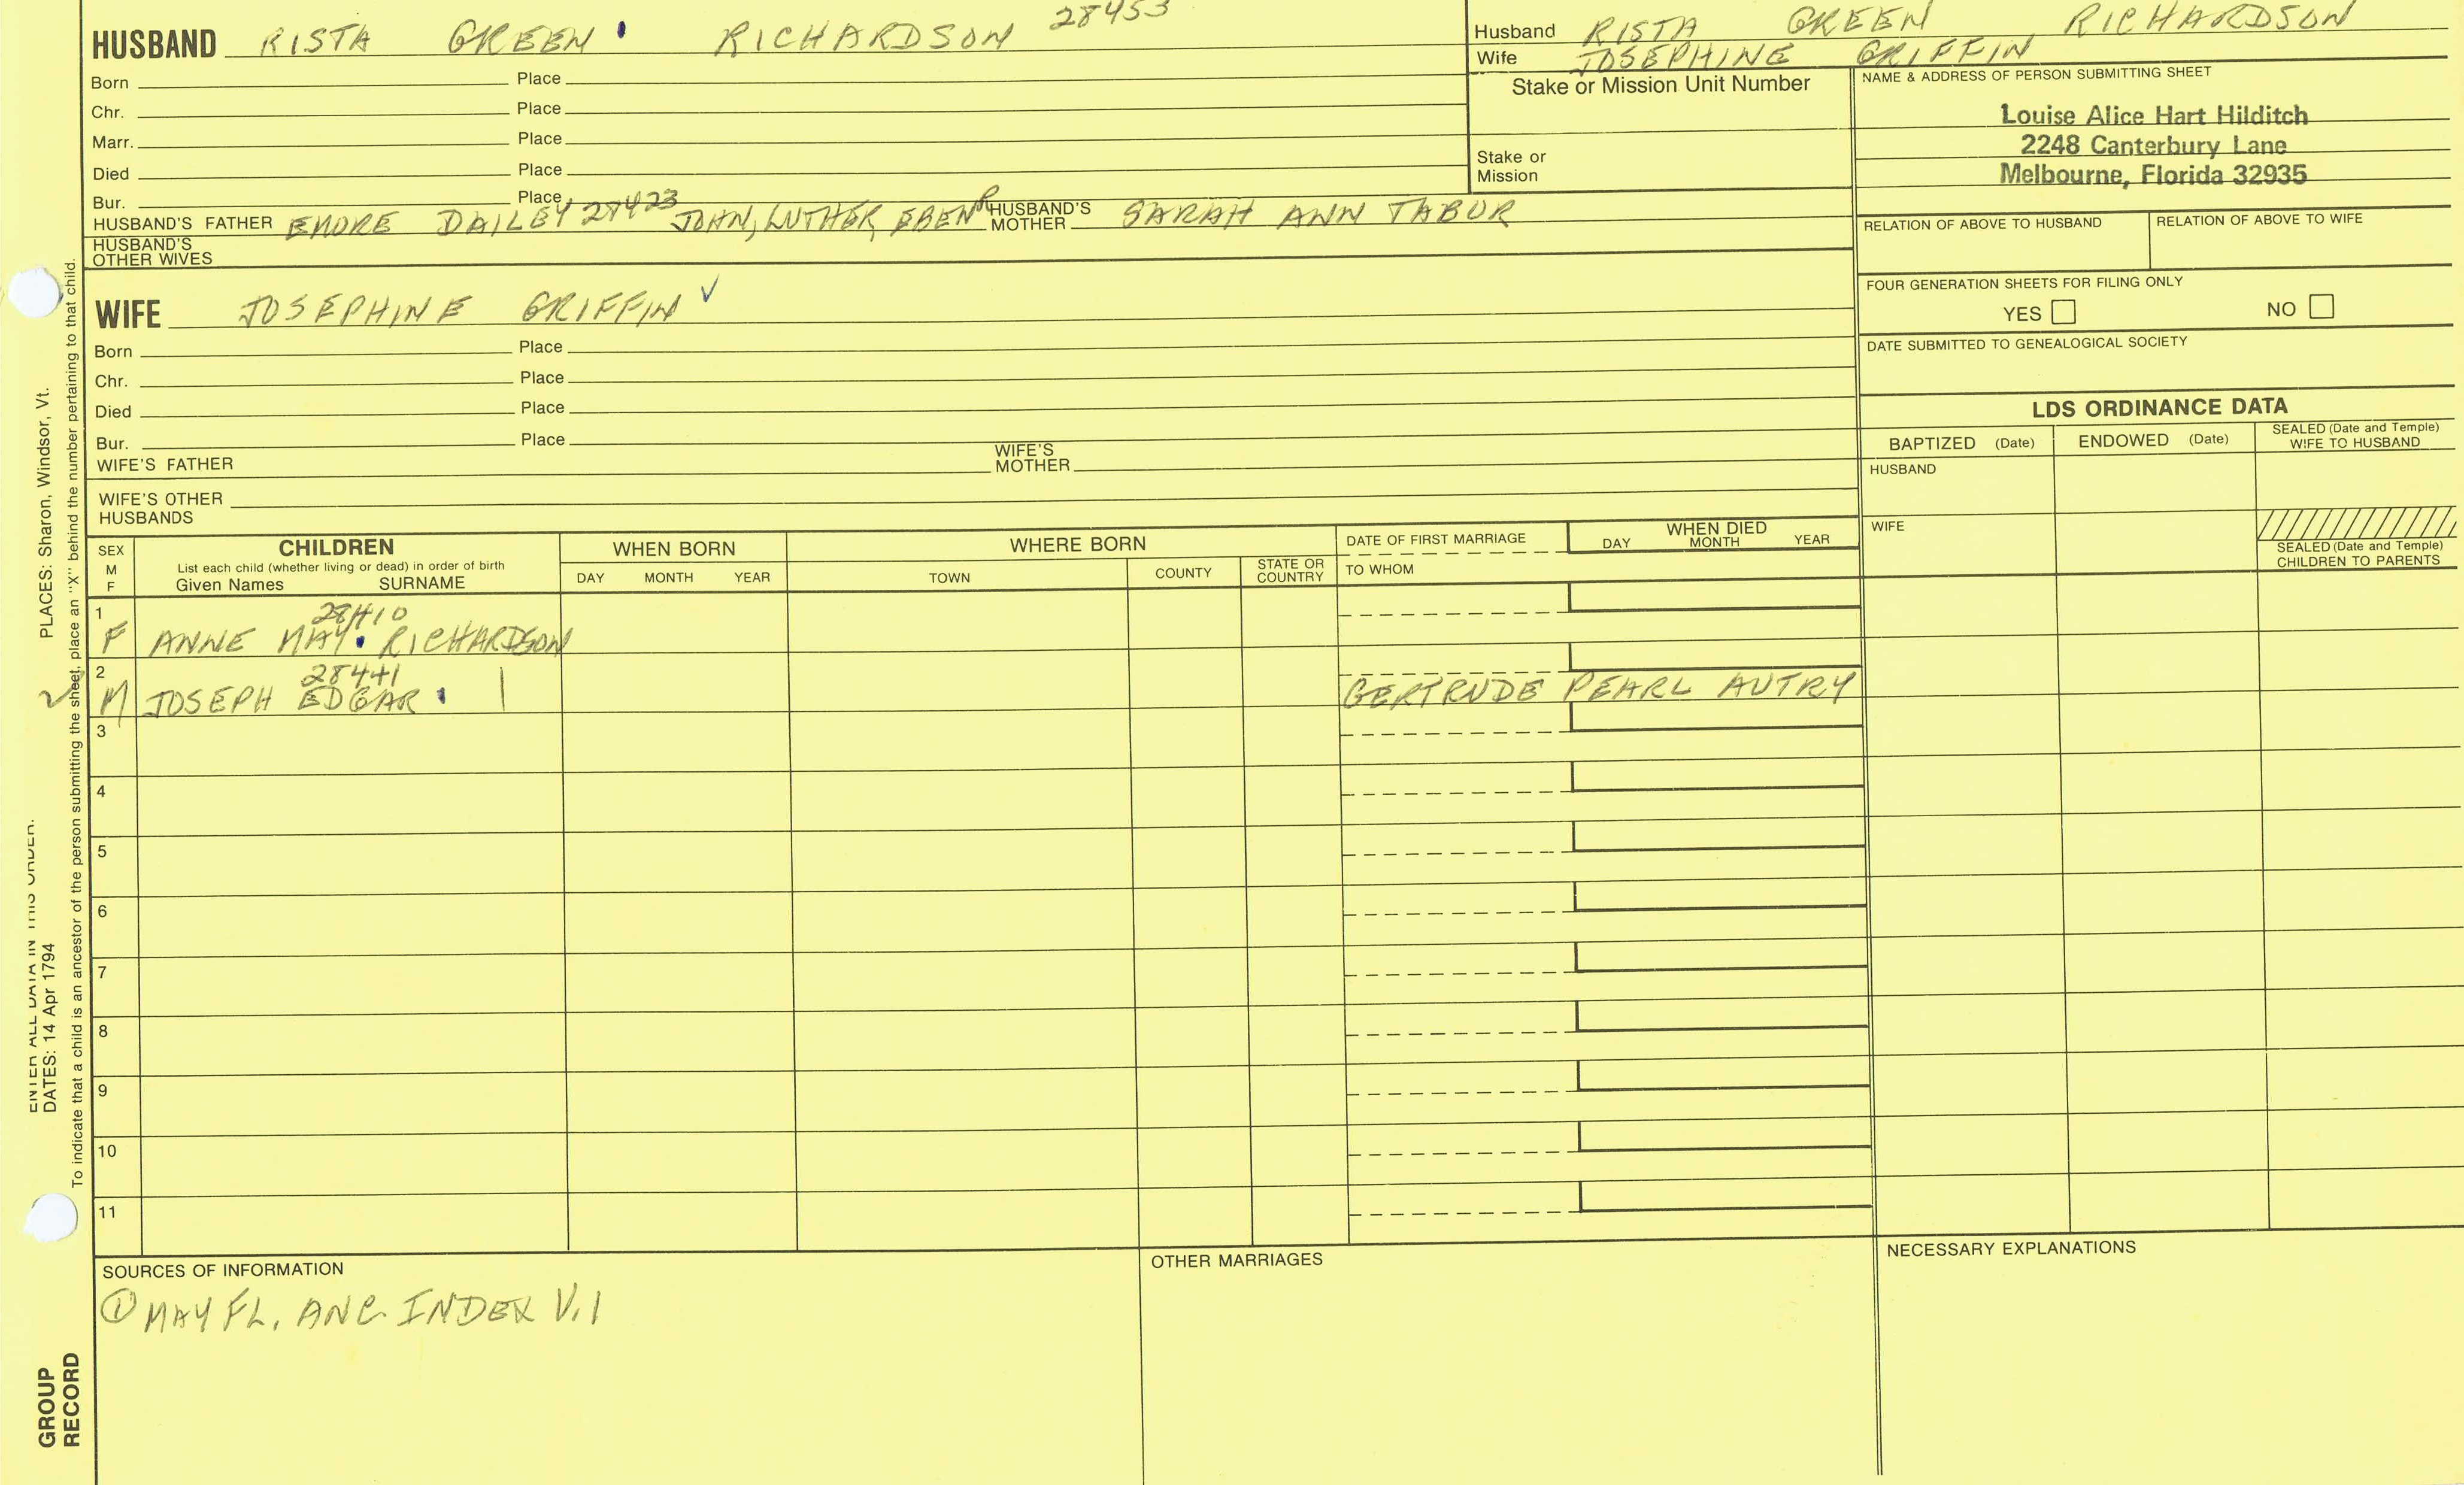 HUSBAND RISTA GREEN RICHARDSON 28453
Born Place
Chr. Place
Marr. Place
Died Place
Bur. Place
HUSBAND'S FATHER EMORE DAILEY 28423 JOHN, LUTHER, EBEN HUSBAND'S MOTHER SARAH ANN TABOR
HUSBAND'S OTHER WIVES
Husband RISTA GREEN RICHARDSON
Wife JOSEPHINE GRIFFIN
Stake or Mission Unit Number
Stake or Mission
NAME & ADDRESS OF PERSON SUBMITTING SHEET
Louise Alice Hart Hilditch
2248 Canterbury Lane
Melbourne, Florida 32935
RELATION OF ABOVE TO HUSBAND RELATION OF ABOVE TO WIFE
FOUR GENERATION SHEETS FOR FILING ONLY
YES NO
DATE SUBMITTED TO GENEALOGICAL SOCIETY
WIFE JOSEPHINE GRIFFIN
Born Place
Chr. Place
Died Place
Bur. Place
WIFE'S FATHER WIFE'S MOTHER
WIFE'S OTHER HUSBANDS
LDS ORDINANCE DATA
BAPTIZED (Date) ENDOWED (Date) SEALED (Date and Temple) WIFE TO HUSBAND
HUSBAND
WIFE
SEALED (Date and Temple) CHILDREN TO PARENTS
SEX M F
CHILDREN
List each child (whether living or dead) in order of birth
Given Names SURNAME
WHEN BORN
DAY MONTH YEAR
WHERE BORN
TOWN COUNTY STATE OR COUNTRY
DATE OF FIRST MARRIAGE
TO WHOM
WHEN DIED
DAY MONTH YEAR
1 28410
F ANNE MAY RICHARDSON
2 28441
M JOSEPH EDGAR GERTRUDE PEARL AUTRY
3
4
5
6
7
8
9
10
11
SOURCES OF INFORMATION
① MAY FL. ANC INDEX V.1
OTHER MARRIAGES
NECESSARY EXPLANATIONS
ENTER ALL DATA IN THIS ORDER.
DATES: 14 Apr 1794 PLACES: Sharon, Windsor, Vt.
To indicate that a child is an ancestor of the person submitting the sheet, place an "X" behind the number pertaining to that child.
GROUP
RECORD